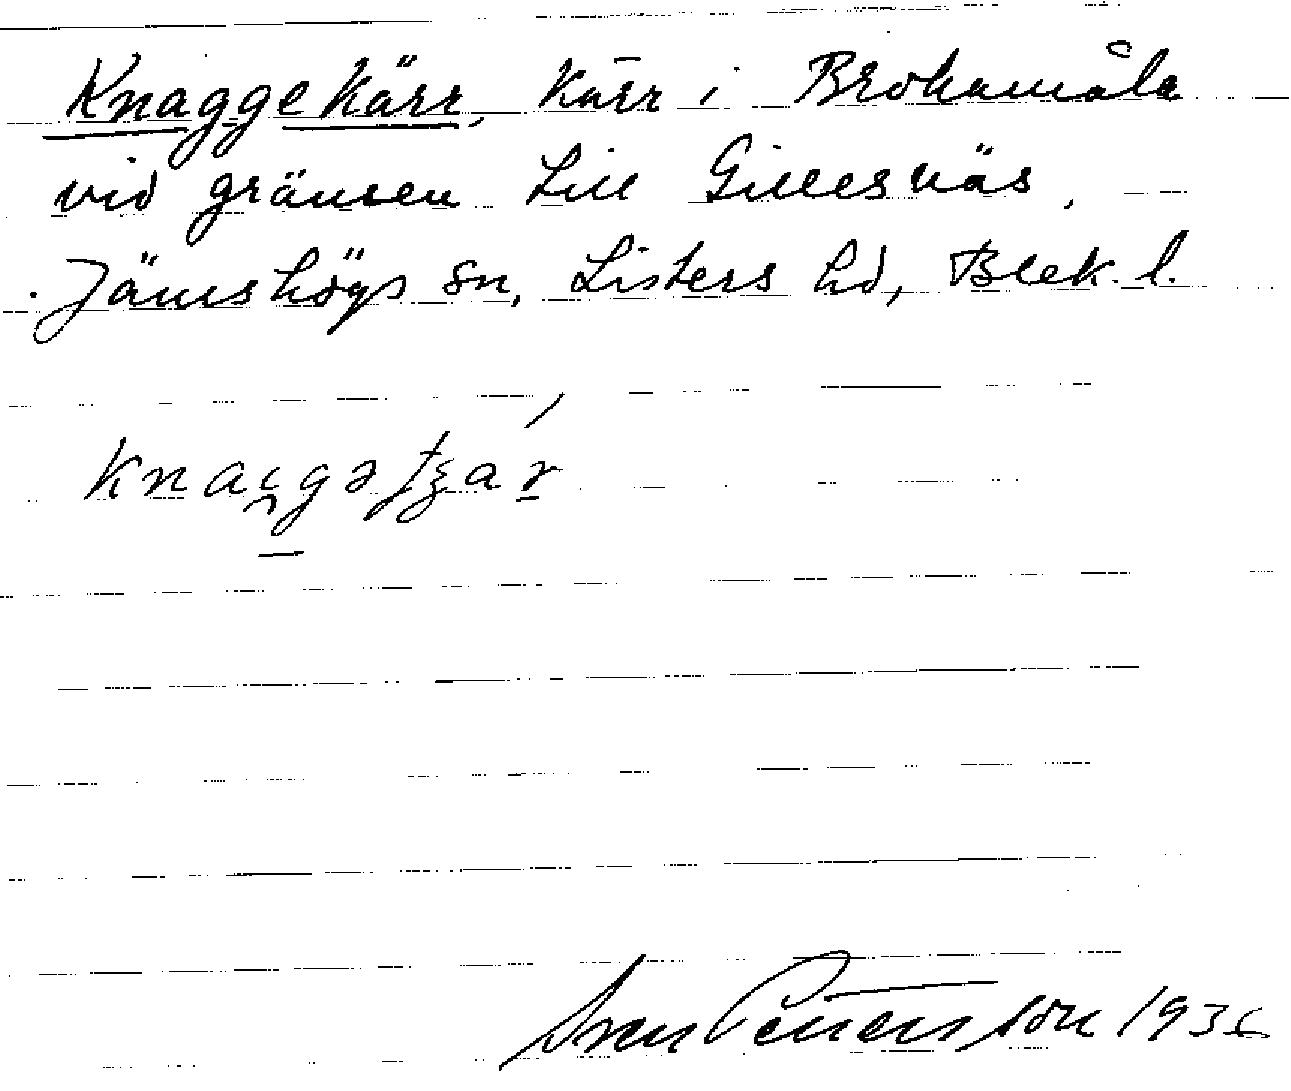 Knaggekärr, kärr i Brokamåla
vid gränsen till Gillesnäs,
Jämshögs sn, Listers hd, Blek. l.
1936